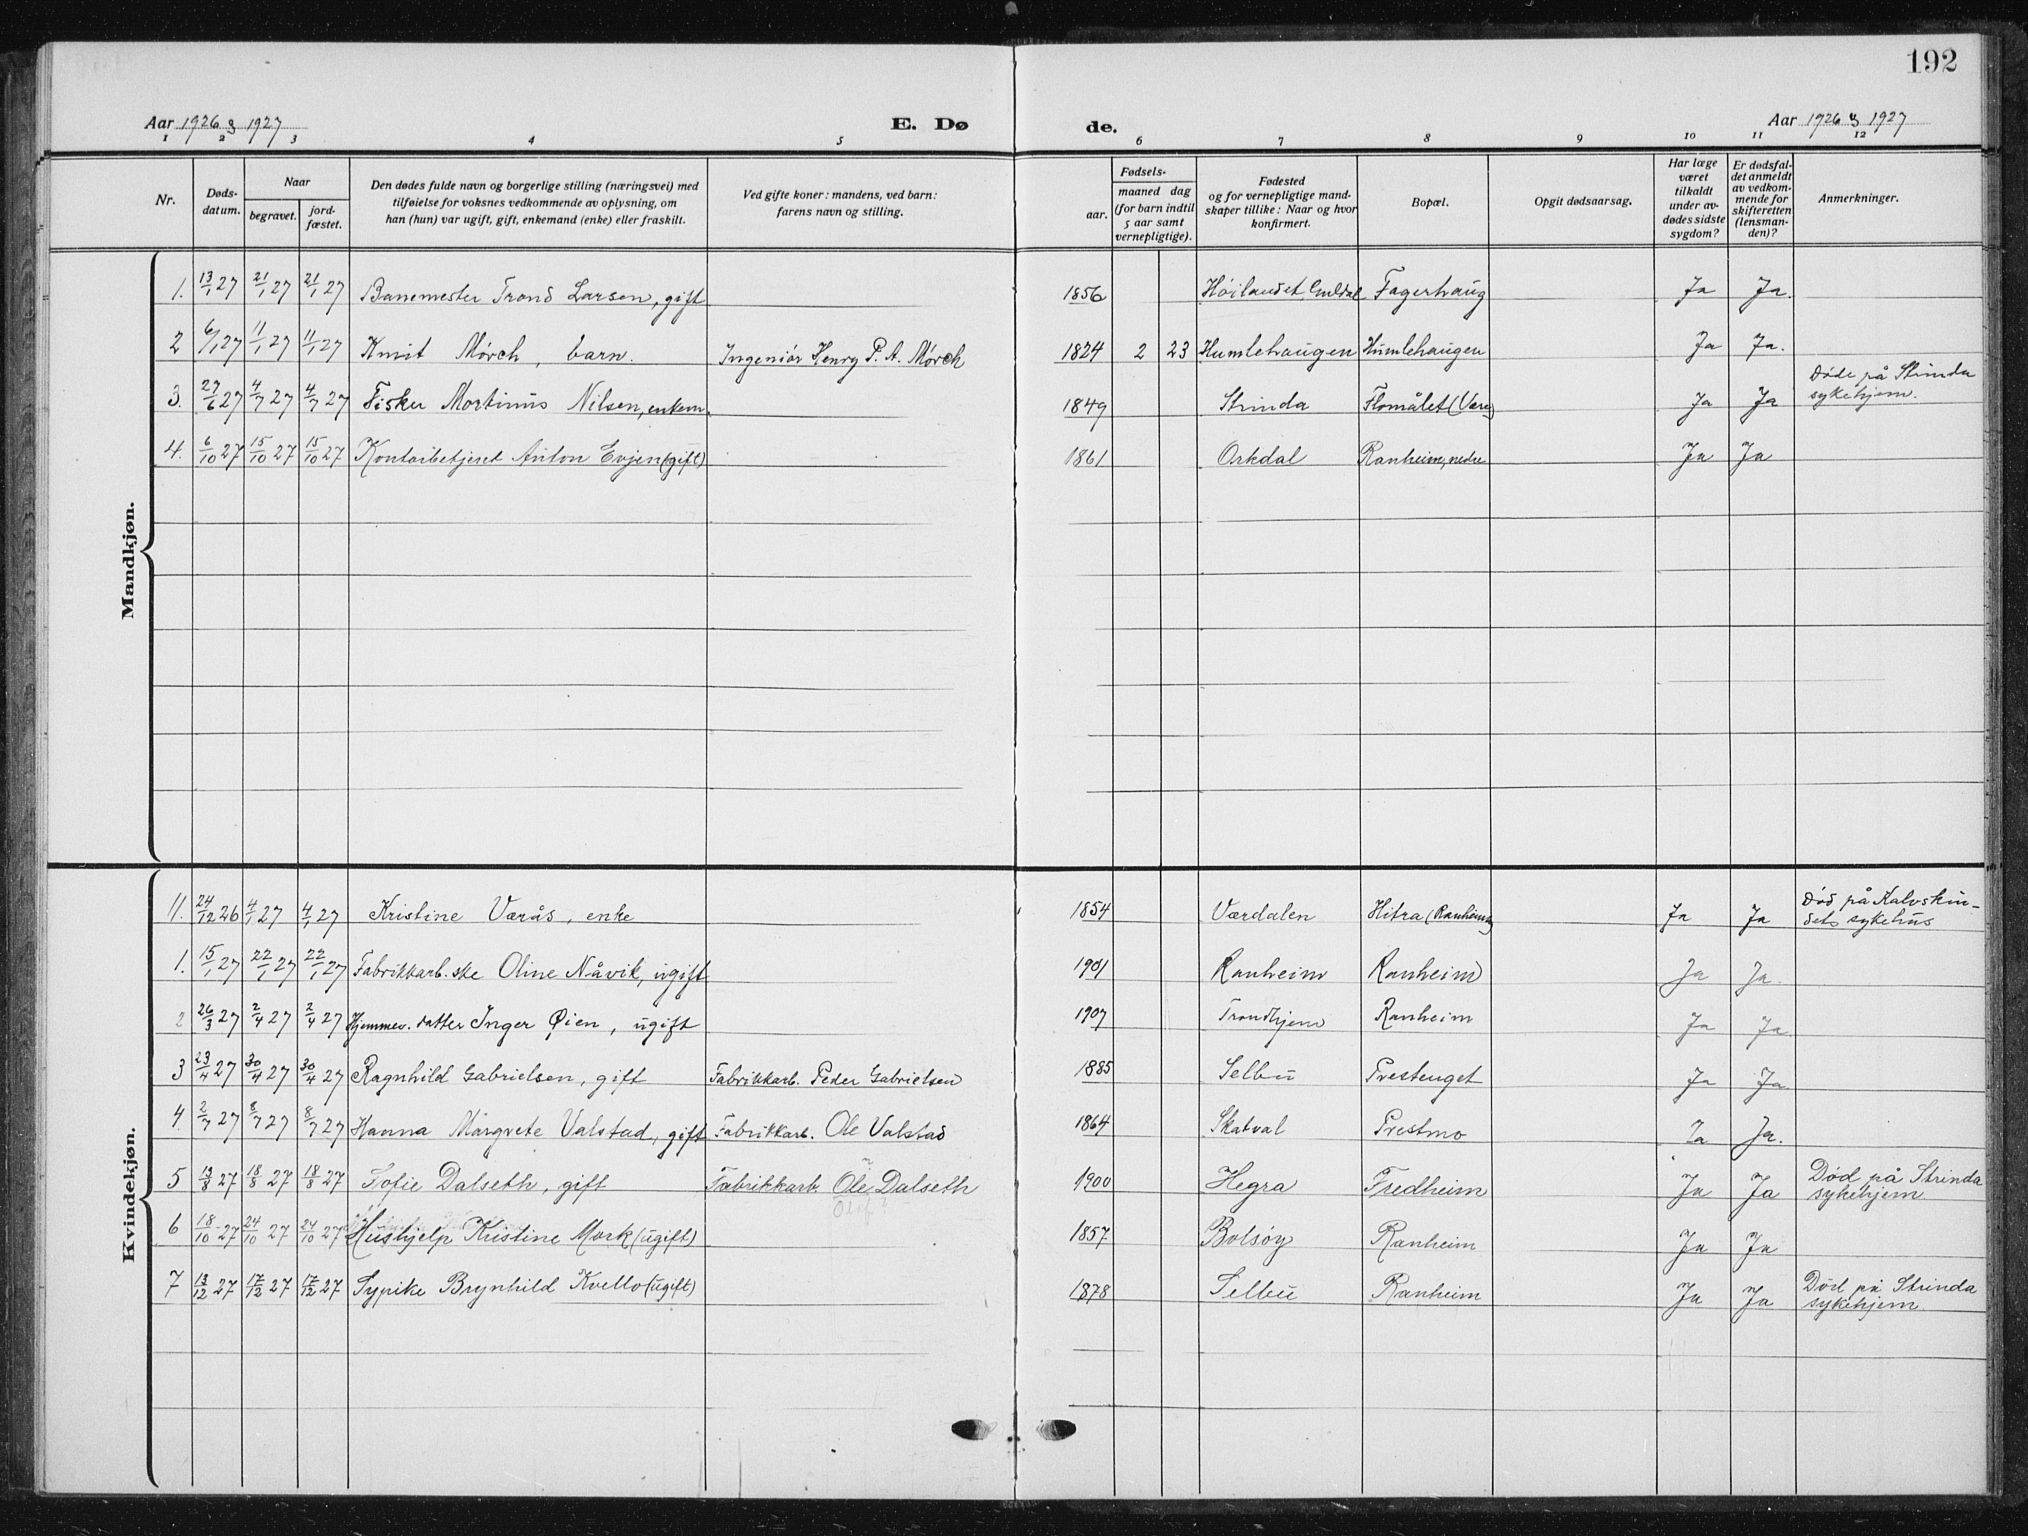 192
Aar 1926 & 1927
E. Dø
de.
Aar 1926 & 1927
1 2 3 4 5 6 7 8 9 10 11 12
Nr.
Døds-
datum.
Naar
begravet.
jord-
fæstet.
Den dødes fulde navn og borgerlige stilling (næringsvei) med
tilføielse for voksnes vedkommende av oplysning, om
han (hun) var ugift, gift, enkemand (enke) eller fraskilt.
Ved gifte koner: mandens, ved barn:
farens navn og stilling.
Fødsels-
aar.
maaned dag
(for barn indtil
5 aar samt
vernepligtige).
Fødested
og for vernepligtige mand-
skaper tillike: Naar og hvor
konfirmert.
Bopæl.
Opgit dødsaarsag.
Har læge
været
tilkaldt
under av-
dødes sidste
sygdom?
Er dødsfal-
det anmeldt
av vedkom-
mende for
skifteretten
(lensman-
den)?
Anmerkninger.
Mandkjøn.
1. 13/1 27 21/1 27 21/1 27 Banemester Trond Larsen, gift 1856 Høilandet Guldal Fagerhaug Ja Ja.
2 6/1 27 11/1 27 11/1 27 Knut Mørch, barn. Ingeniør Henry P. A. Mørch 1824 2 23 Humlehaugen Humlehaugen Ja Ja.
3. 27/6 27 4/7 27 4/7 27 Fisker Mortinus Nilsen, enkem. 1849 Strinda Flomålet (Være) Ja Ja Døde på Strinda
sykehjem.
4. 6/10 27 15/10 27 15/10 27 Kontorbetjent Anton Evjen (gift) 1861 Orkdal Ranheim, nedre Ja Ja
Kvindekjøn.
11. 24/12 26 4/1 27 4/1 27 Kristine Værås, enke 1854 Værdalen Hitra (Ranheim) Ja Ja Død på Kalvskin-
dets sykehus
1. 15/1 27 22/1 27 22/1 27 Fabrikkarb.ske Oline Nåvik, ugift 1901 Ranheim Ranheim Ja Ja.
2 26/3 27 2/4 27 2/4 27 Hjemmev. datter Inger Øien, ugift 1907 Trondhjem Ranheim Ja Ja
3 23/4 27 30/4 27 30/4 27 Ragnhild Gabrielsen, gift Fabrikkarb. Peder Gabrielsen 1885 Selbu Prestenget Ja Ja
4. 2/7 27 8/7 27 8/7 27 Hanna Margrete Valstad, gift Fabrikkarb. Ole Valstad 1864 Skatval Prestmo Ja Ja.
5 13/8 27 18/8 27 18/8 27 Sofie Dalseth, gift Fabrikkarb. Ole Dalseth 1900 Hegra Fredheim Ja Ja Død på Strinda
sykehjem
Olaf?
6 18/10 27 24/10 27 24/10 27 Hushjelp Kristine Mork (ugift) 1857 Bolsøy Ranheim Ja Ja
7 13/12 27 17/12 27 17/12 27 Sypike Brynhild Kvello (ugift) 1878 Selbu Ranheim Ja Ja Død på Strinda
sykehjem